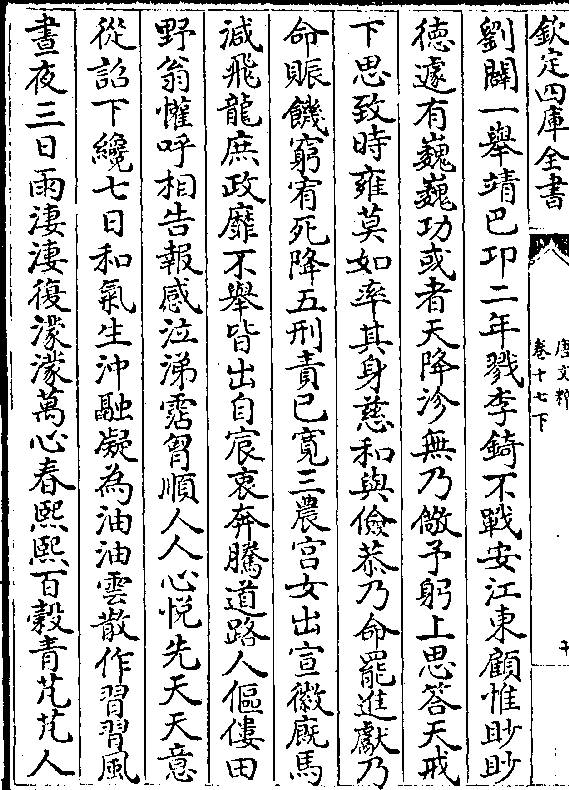 欽定四庫全書
唐文粹
卷十七下
劉闢一舉靖巴卭二年戮李錡不戰安江東顧惟眇眇
徳遽有巍巍功或者天降沴無乃儆予躬上思答天戒
下思致時雍莫如率其身慈和與儉恭乃命罷進獻乃
命賑饑窮宥死降五刑責已寛三農宫女出宣徽廐馬
減飛龍庶政靡不舉皆出自宸衷奔騰道路人傴僂田
野翁懽呼相告報感泣涕霑胷順人人心悦先天天意
從詔下纔七日和氣生沖融凝為油油雲散作習習風
晝夜三日雨淒淒復濛濛萬心春熙熙百榖青芃芃人